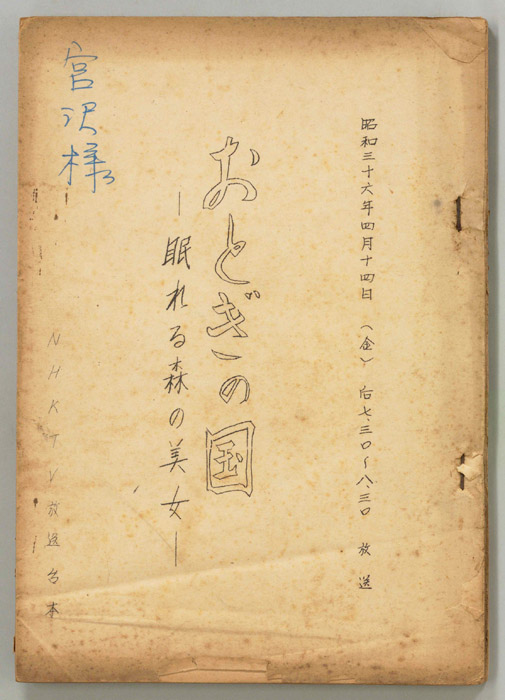 昭和三十六年四月十四日 (金) 后七.三〇〜八.三〇 放送
おとぎの国
―眠れる森の美女―
宮沢様
NHKTV放送台本